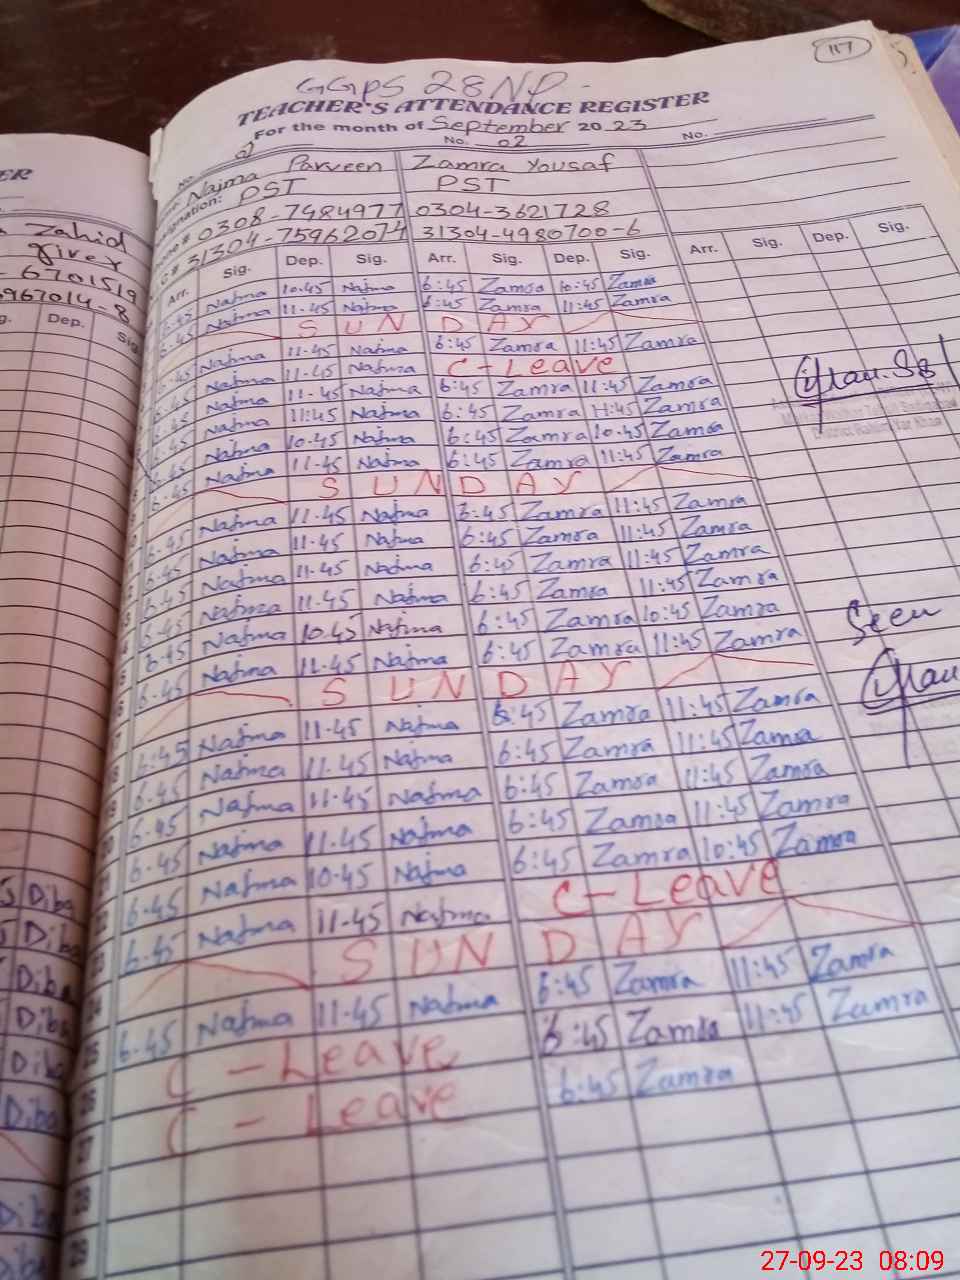 117
GGPS 28NP
TEACHER'S ATTENDANCE REGISTER
For the month of September 2023
No. 02 No.
Najma Parveen Zamra Yousaf
PST PST
0308-7484977 0304-3621728
31304-4980700-6
Arr. Sig. Dep. Sig. Arr. Sig. Dep. Sig. Arr. Sig. Dep. Sig.
6.45 Najma 10.45 Najma 6:45 Zamra 10:45 Zamra
6.45 Najma 11.45 Najma 6:45 Zamra 11:45 Zamra
SUNDAY
6.45 Najma 11.45 Najma 6:45 Zamra 11:45 Zamra
6.45 Najma 11.45 Najma C-Leave
6.45 Najma 11.45 Najma 6:45 Zamra 11:45 Zamra
6.45 Najma 11:45 Najma 6:45 Zamra 11:45 Zamra
6.45 Najma 10.45 Najma 6:45 Zamra 10:45 Zamra
6.45 Najma 11.45 Najma 6:45 Zamra 11:45 Zamra
SUNDAY
6.45 Najma 11.45 Najma 6:45 Zamra 11:45 Zamra
6.45 Najma 11.45 Najma 6:45 Zamra 11:45 Zamra
6.45 Najma 11.45 Najma 6:45 Zamra 11:45 Zamra
6.45 Najma 11.45 Najma 6:45 Zamra 11:45 Zamra
6.45 Najma 10.45 Najma 6:45 Zamra 10:45 Zamra
6.45 Najma 11.45 Najma 6:45 Zamra 11:45 Zamra
Seen
SUNDAY
6:45 Najma 11.45 Najma 6:45 Zamra 11:45 Zamra
6.45 Najma 11.45 Najma 6:45 Zamra 11:45 Zamra
6.45 Najma 11.45 Najma 6:45 Zamra 11:45 Zamra
6.45 Najma 11.45 Najma 6:45 Zamra 11:45 Zamra
6.45 Najma 10.45 Najma 6:45 Zamra 10:45 Zamra
6.45 Najma 11.45 Najma C-Leave
SUNDAY
6.45 Najma 11.45 Najma 6:45 Zamra 11:45 Zamra
C-Leave 6:45 Zamra 11:45 Zamra
C-Leave 6:45 Zamra
27
28
29
Zahid
6701519
Dep.
Diba
Diba
Diba
Diba
Diba
Diba
27-09-23 08:09